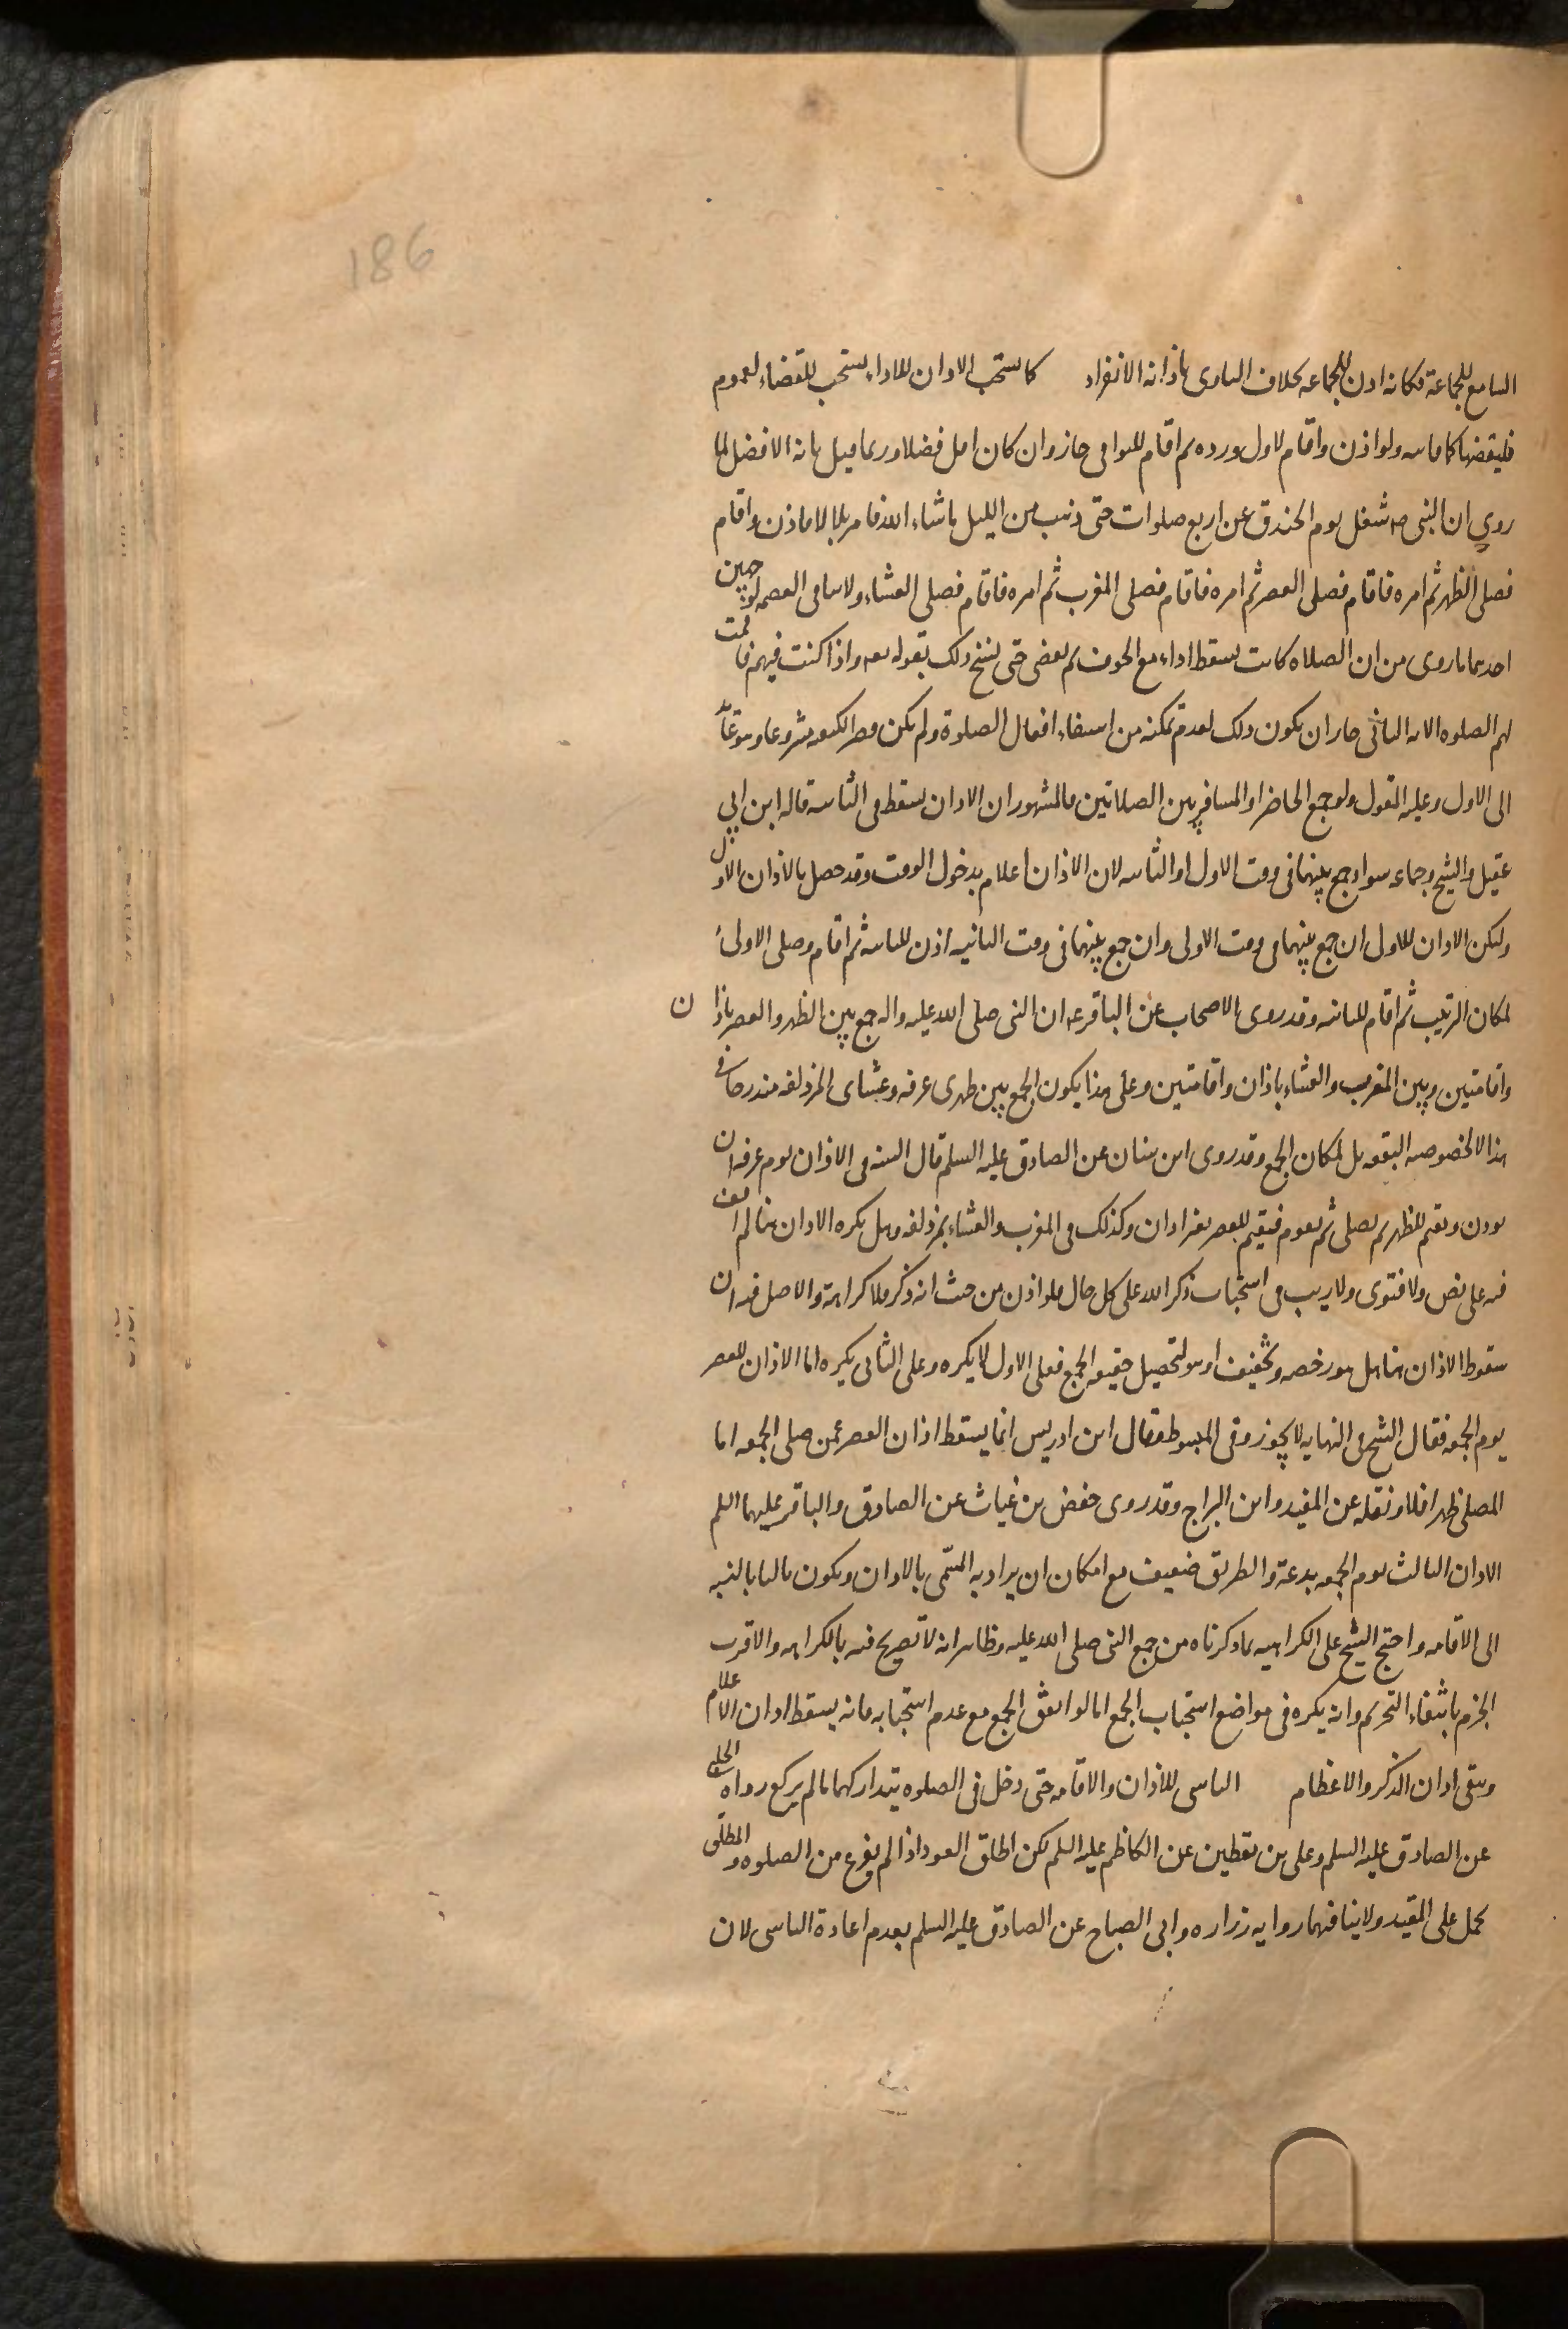 186
السامع للجماعة فكانه اذن للجماعه بخلاف الناوى باذانه الانفراد كما يستحب الاذان للاداء يستحب للقضاء لعموم
فليقضها كما فاتته ولو اذن واقام لاول ورده ثم اقام للبواقى جاز وان كان اقل فضلا وربما قيل بانه الافضل لما
روي ان النبى صه شغل يوم الخندق عن اربع صلوات حتى ذهب من الليل ماشاء الله فامر بلالا فاذن واقام
فصلى الظهر ثم امره فاقام فصلى العصر ثم امره فاقام فصلى المغرب ثم امره فاقام فصلى العشاء ولاينافى العصمه لوجهين
احدهما ماروى من ان الصلاه كانت تسقط اداء مع الخوف ثم تقضى حتى نسخ ذلك بقوله تعه واذا كنت فيهم فاقمت
لهم الصلوه الايه الثانى جاز ان يكون ذلك لعدم تمكنه من استيفاء افعال الصلوة ولم يكن قصر الكيفيه مشروعا وهو عائد
الى الاول وعليه المعول ولو جمع الحاضر او المسافر بين الصلاتين فالمشهور ان الاذان يسقط فى الثانيه قاله ابن ابي
عقيل والشيخ وجماعه سواء جمع بينهما فى وقت الاول او الثانيه لان الاذان اعلام بدخول الوقت وقد حصل بالاذان الاول
وليكن الاذان للاول ان جمع بينهما فى وقت الاولى وان جمع بينهما فى وقت الثانيه اذن للثانيه ثم اقام وصلى الاولى
لمكان الترتيب ثم اقام للثانيه وقد روى الاصحاب عن الباقر عه ان النبى صلى الله عليه واله جمع بين الظهر والعصر باذان
واقامتين وبين المغرب والعشاء باذان واقامتين وعلى هذا يكون الجمع بين ظهرى عرفه وعشاى المزدلفه مندرجا فى
هذا لا لخصوصيه البقعه بل لمكان الجمع وقد روى ابن سنان عن الصادق عليه السلم قال السنه فى الاذان يوم عرفه ان
يوذن ويقيم للظهر ثم يصلى ثم يقوم فيقيم للعصر بغير اذان وكذلك فى المغرب والعشاء بمزدلفه وهل يكره الاذان هنا لم اقف
فيه على نص ولا فتوى ولاريب فى استحباب ذكر الله على كل حال فلو اذن من حيث انه ذكر فلا كراهة والاصل فيه ان
سقوط الاذان هنا هل هو رخصه وتخفيف او هو لتحصيل حقيقه الجمع فعلى الاول لا يكره وعلى الثانى يكره اما الاذان للعصر
يوم الجمعه فقال الشيخ فى النهايه لا يجوز وفى المبسوط وقال ابن ادريس انما يسقط اذان العصر عمن صلى الجمعه اما
المصلى ظهرا فلا ونقله عن المفيد وابن البراج وقد روى حفص بن غياث عن الصادق والباقر عليهما السلم
الاذان الثالث يوم الجمعه بدعة والطريق ضعيف مع امكان ان يراد به المسمى بالاذان ويكون ثالثا بالنسبه
الى الاقامه واحتج الشيخ على الكراهيه بما ذكرناه من جمع النبى صلى الله عليه وظاهر انه لا تصريح فيه بالكراهه والاقرب
الجزم بانتفاء التحريم وانه يكره فى مواضع استحباب الجمع اما لو اتفق الجمع مع عدم استحبابه فانه يسقط اذان الاعلام
ويبقى اذان الذكر والاعظام الناسى للاذان والاقامه حتى دخل فى الصلوه يتداركهما مالم يركع رواه الحلبى
عن الصادق عليه السلم وعلى بن يقطين عن الكاظم عليه السلم لكن اطلق العود اذا لم يفرغ من الصلوه والمطلق
يحمل على المقيد ولاينافيهما روايه زراره وابى الصباح عن الصادق عليه السلم بعدم اعادة الناسى لان